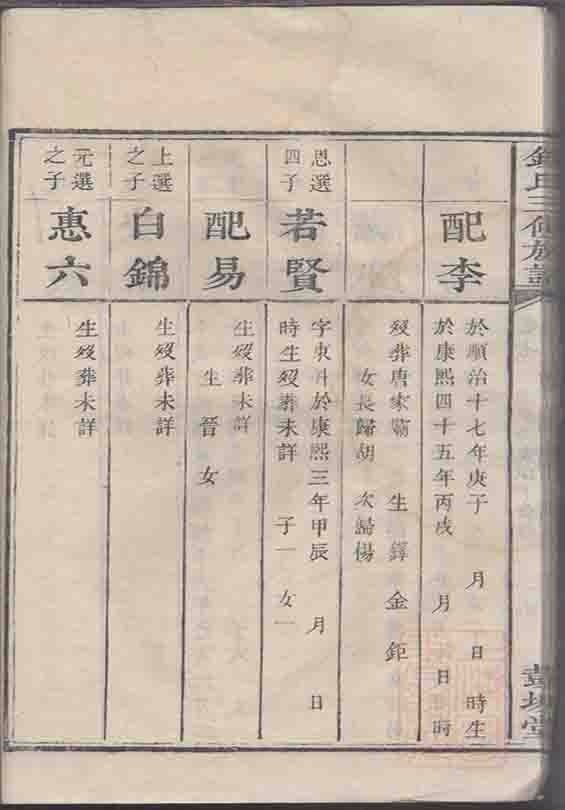 氏三修族譜
彭城堂
配李
於順治十七年庚子 月 日時生
於康熙四十五年丙戌 月 日時
歿葬唐家 生 鐸 金 鉅
女長歸胡 次歸楊
恩選
四子
若賢
字東 於康熙三年甲辰 月 日
時生歿葬未詳 子一 女一
配易
生歿葬未詳
生晉女
上選
之子
白錦
生歿葬未詳
元選
之子
惠六
生歿葬未詳